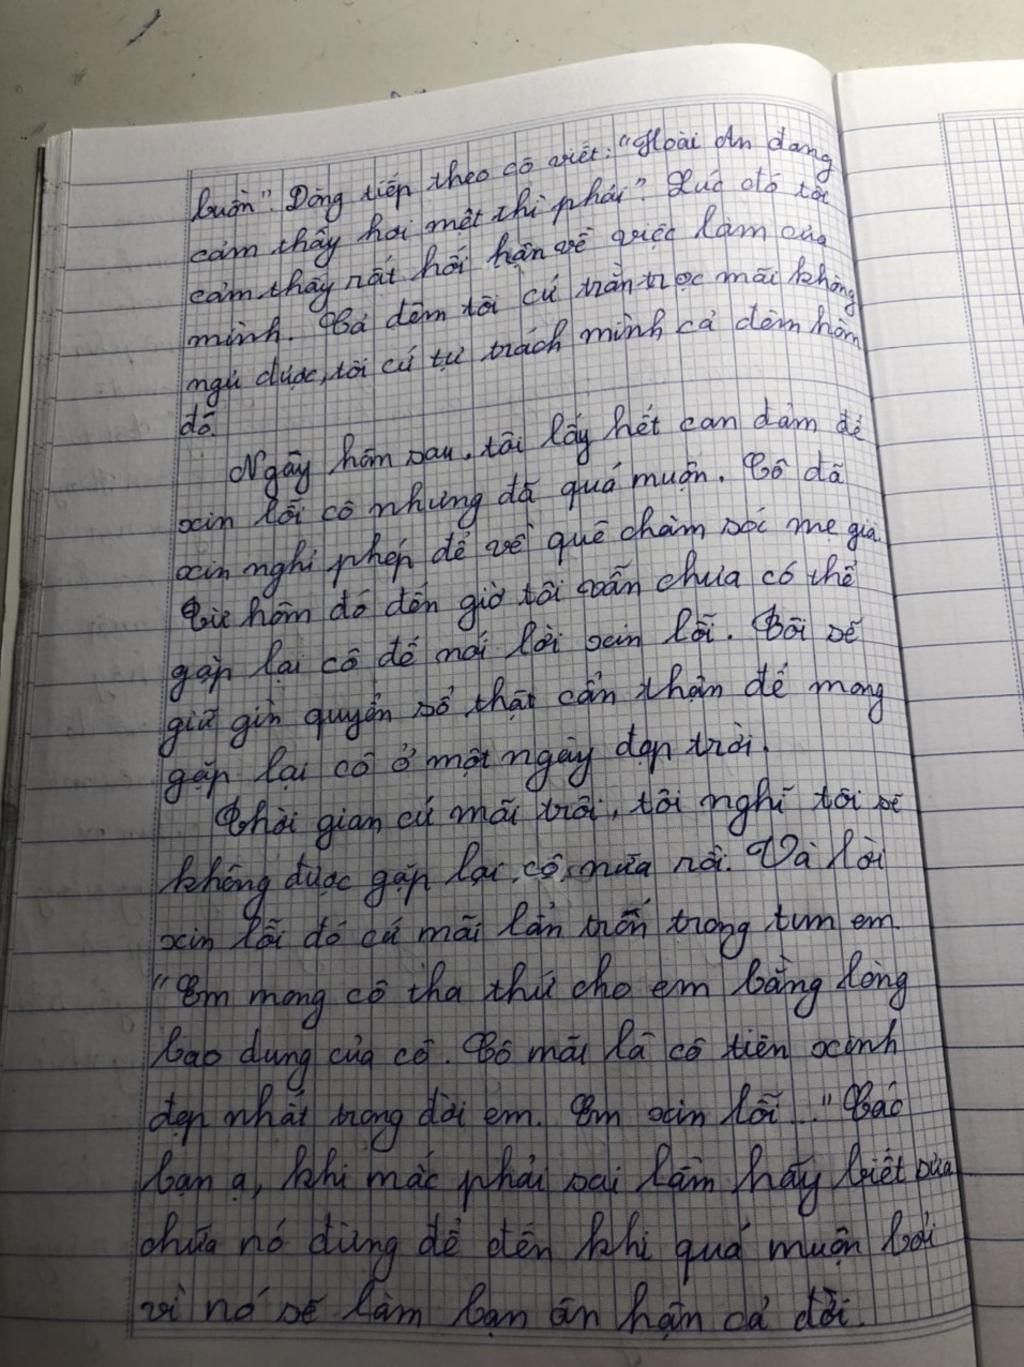 buồn". Dòng tiếp theo cô viết: "Hoài An đang
cảm thấy hơi mệt thì phải". Lúc đó tôi
cảm thấy rất hối hận về việc làm của
mình. Cả đêm tôi cứ trằn trọc mãi không
ngủ được, tôi cứ tự trách mình cả đêm hôm
đó.
Ngày hôm sau, tôi lấy hết can đảm để
xin lỗi cô nhưng đã quá muộn. Cô đã
xin nghỉ phép để về quê chăm sóc mẹ già.
Từ hôm đó đến giờ tôi vẫn chưa có thể
gặp lại cô để nói lời xin lỗi. Tôi sẽ
giữ gìn quyển sổ thật cẩn thận để mong
gặp lại cô ở một ngày đẹp trời.
Thời gian cứ mãi trôi, tôi nghĩ tôi sẽ
không được gặp lại cô nữa rồi. Và lời
xin lỗi đó cứ mãi lẩn trốn trong tim em.
"Em mong cô tha thứ cho em bằng lòng
bao dung của cô. Cô mãi là cô tiên xinh
đẹp nhất trong đời em. Em xin lỗi..." Các
bạn ạ, khi mắc phải sai lầm hãy biết sửa
chữa nó đừng để đến khi quá muộn bởi
vì nó sẽ làm bạn ân hận cả đời.